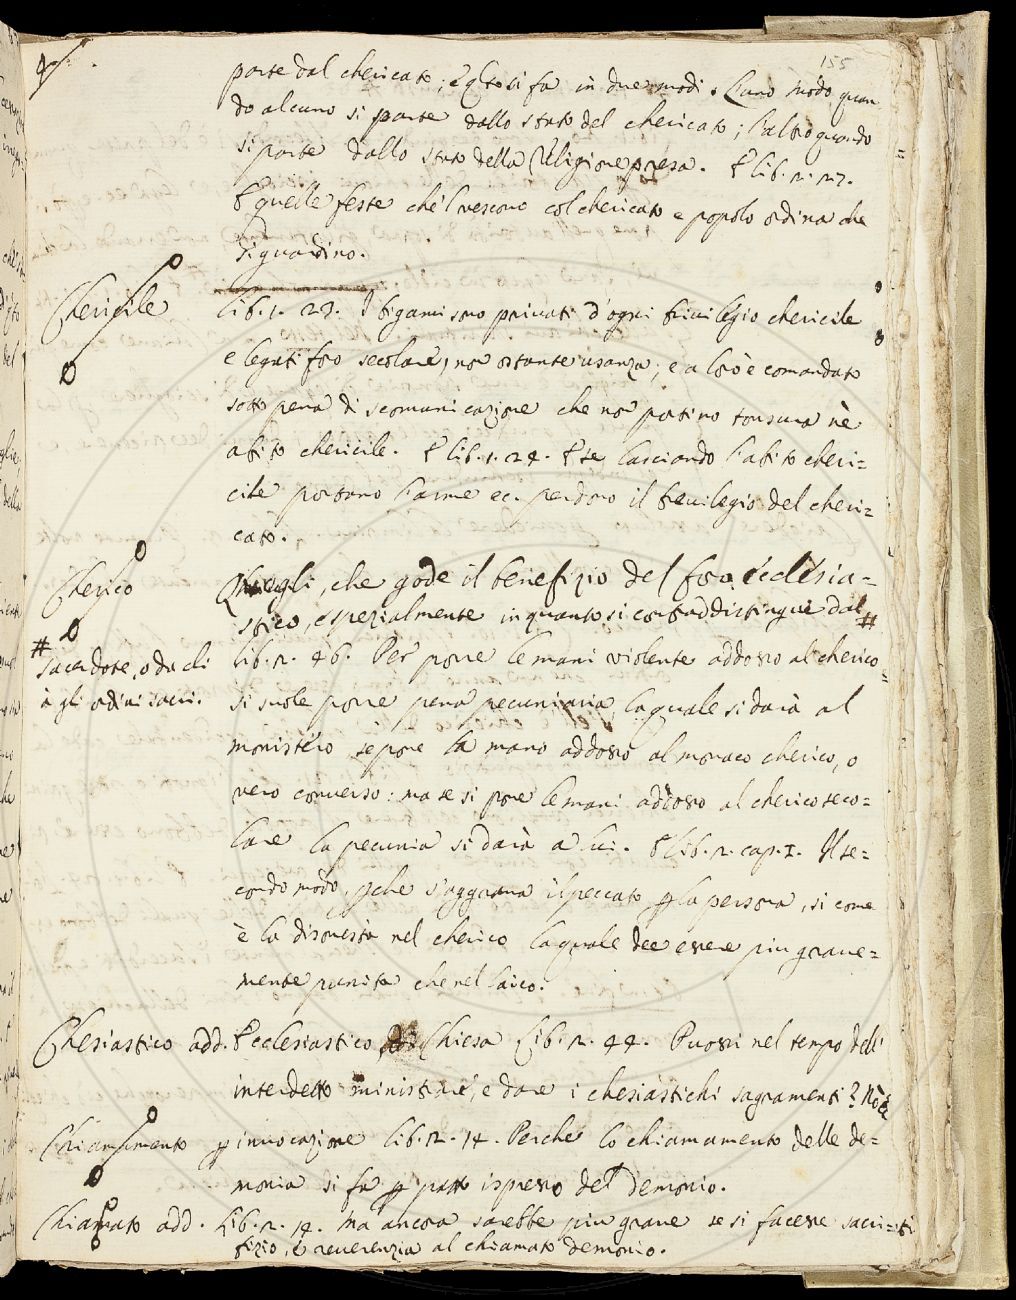 155
parte dal chericato; e q̃to si fa in due modi. L'uno modo quan
do alcuno si parte dallo stato del chericato; l'altro quando
si parte dallo stato della religione presa. E lib. 2. 27.
E quelle feste che'l vescovo col chericato e popolo ordina che
si guardino.
Chericile lib. 1. 23. I bigami sono privati d'ogni privilegio chericile
e legati foro secolare, non ostante usanza; e a loro è comandato
sotto pena di scomunicazione che non portino tonsura nè
abito chericile. E lib. 1. 24. E se lasciando l'abito cheri=
cile portano l'arme ec. perdono il previlegio del cheri=
cato.
Cherico Quegli, che gode il benefizio del foro ecclesia=
stico, e spezialmente in quanto si contraddistingue dal #
# sacerdote, o da chi
à gli ordini sacri.
lib. 2. 46. Per porre le mani violente addosso al cherico
si suole porre pena pecuniaria, la quale si darà al
monistero, se pone la mano addosso al monaco cherico, o
vero converso: ma se si pone le mani addosso al cherico seco=
lare la pecunia si darà a lui. E lib. 2. cap. 1. Il se=
condo modo, p̱che s'aggrava il peccato p̱ la persona, si come
è la disonestà nel cherico la quale dee essere piu grave=
mente punita che nel laico.
Chesiastico add. Ecclesiastico Chiesa Lib. 2. 44. Puossi nel tempo dell'
interdetto ministrare, e dare i chesiastichi sagramenti?
Chiamamento p̱ invocazione lib. 2. 14. Perche lo chiamamento delle de=
monia si fa p̱ patto ispresso del demonio.
Chiamato add. Lib. 2. 14. Ma ancora sarebbe piu grave se si facesse sacri=
fizio, e reverenzia al chiamato demonio.